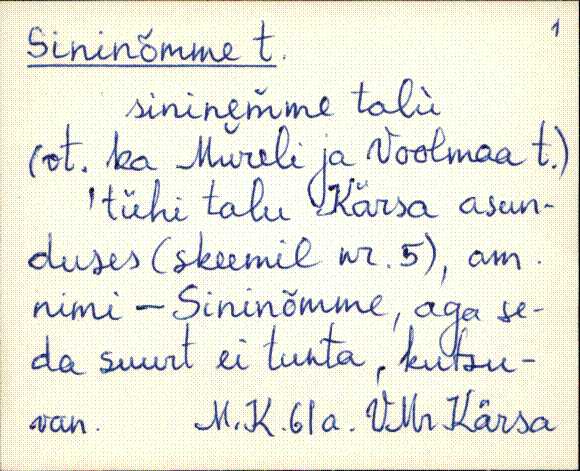 1
Sininõmme t.
sininem̆me talù
(vt. ka Müreli ja Voolmaa t.)
'tühi talu Kärsa asun-
duses (skeemil nr. 5), am.
nimi – Sininõmme, aga se-
da suurt ei tunta, kutsu-
van. M.K. 61a. VMr Kärsa